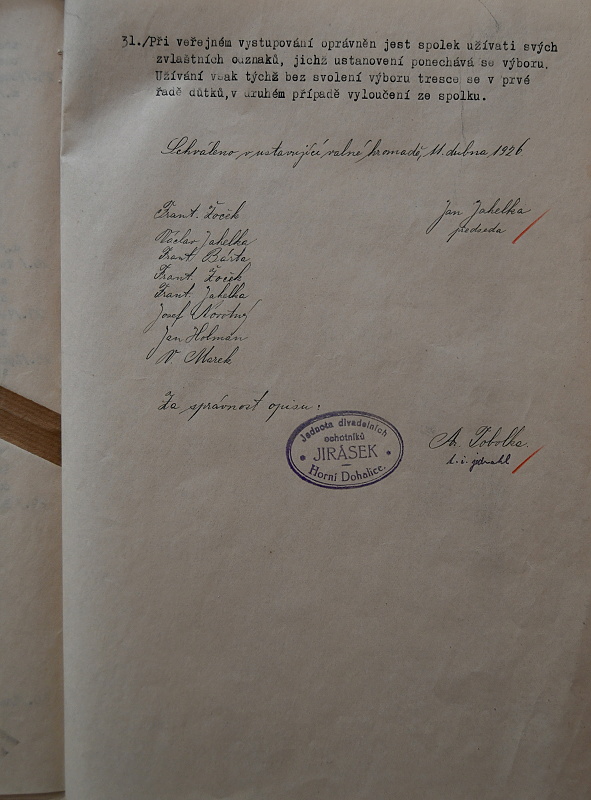 31./Při veřejném vystupování oprávněn jest spolek užívati svých
zvlaštních odznaků, jichž ustanovení ponechává se výboru.
Užívání však týchž bez svolení výboru tresce se v prvé
řadě důtkú, v druhém případě vyloučení ze spolku.
Schváleno v ustavující valné hromadě, 11. dubna 1926
Frant. Žoček
Václav Jahelka
Frant. Bárta
Frant. Žoček
Frant. Jahelka
Josef Novotný
Jan Holman
V. Marek
Jan Jahelka
předseda
Za správnost opisu:
Jednota divadelních
ochotníků
JIRÁSEK
Horní Dohalice.
Tobolka
jednatel